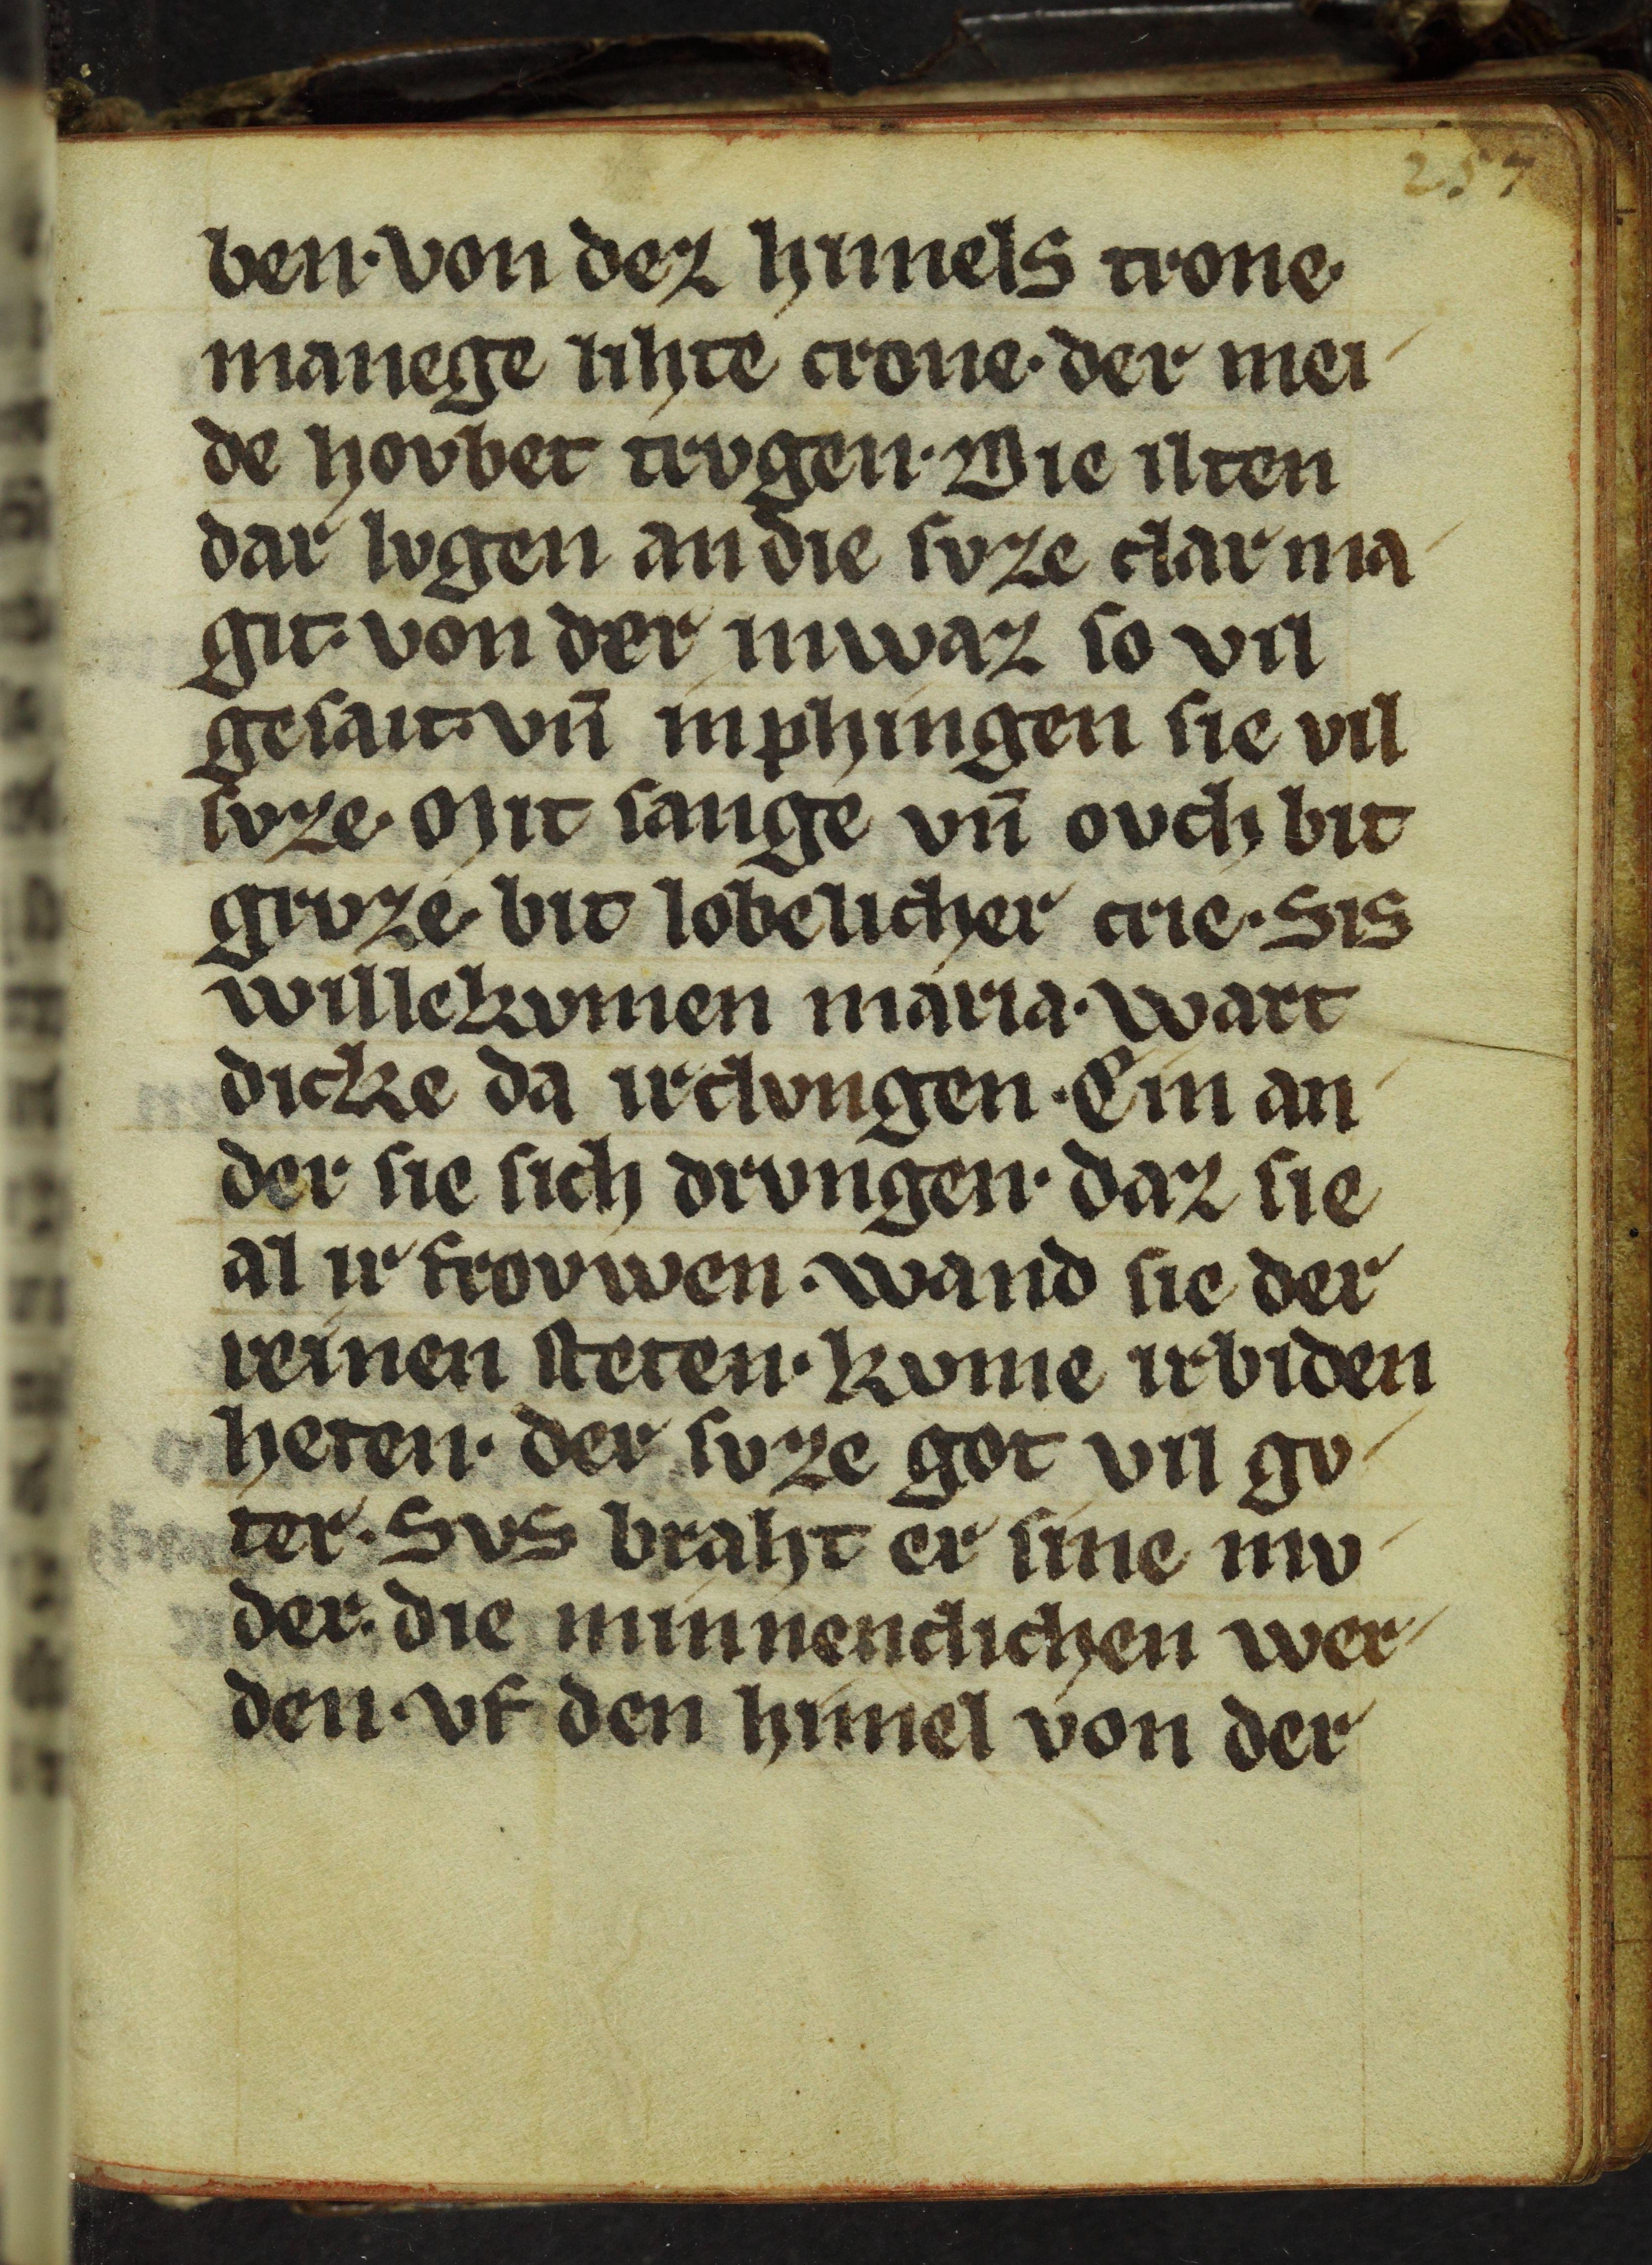 257
ben· von dez himels trone·
manege lihte crone· der mei
de hovbet trvgen· Die ilten
dar lvgen an die svze clar ma
git· von der in waz so vil
gesait· vn̄ inphingen sie vil
svze· Mit sange vn̄ ovch bit
grvze· bit lobelicher crie· Sis
willekvmen maria· wart
dicke da irclvngen· Ein an
der sie sich drvngen· daz sie
al ir frovwen· wand sie der
reinen steten· kvme irbiden
heten· der svze got vil gv
ter· Svs braht er sine mv
der· die minnenclichen wer
den· vf den himel von der